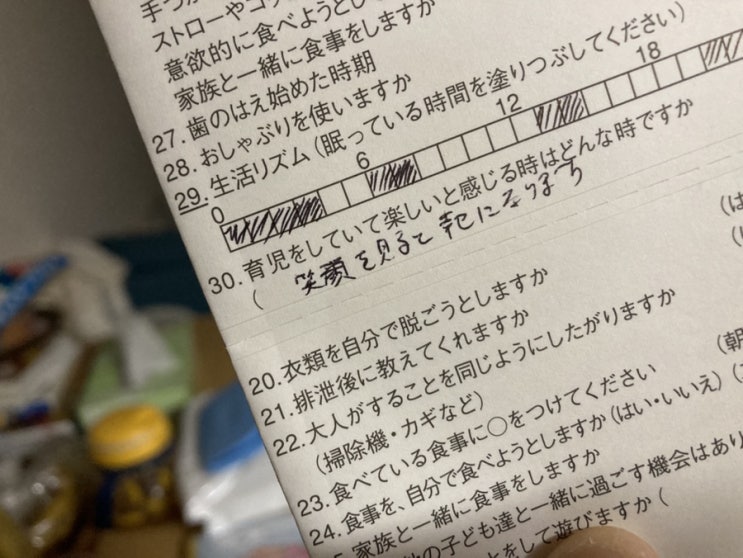 手づか
ストローやコッ
意欲的に食べようとし
家族と一緒に食事をしますか
27.歯のはえ始めた時期
28.おしゃぶりを使いますか
29.生活リズム(眠っている時間を塗りつぶしてください)
0 6 12 18
30.育児をしていて楽しいと感じる時はどんな時ですか
( 笑顔を見ると幸せになります
(は
20.衣類を自分で脱ごうとしますか
21.排泄後に教えてくれますか
22.大人がすることを同じようにしたがりますか
(掃除機・カギなど)
23.食べている食事に○をつけてください (朝
24.食事を、自分で食べようとしますか(はい・いいえ)
家族と一緒に食事をしますか
の子ども達と一緒に過ごす機会はあり
をして遊びますか(